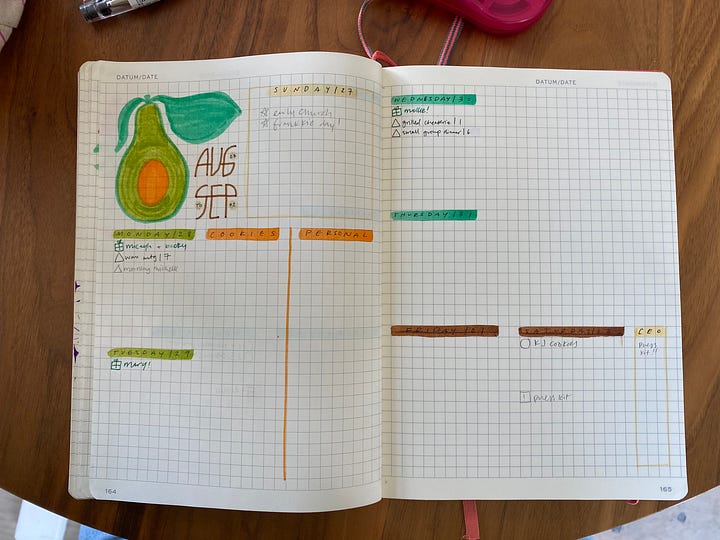 DATUM/DATE
AUG 27
SEP 02
SUNDAY/27
early church
frankie day!
MONDAY/28
wax mtg/7
COOKIES
PERSONAL
TUESDAY/29
mary!
164
DATUM/DATE
WEDNESDAY/30
mollie!
grilled cheeserie/1
small group dinner/6
THURSDAY/31
FRIDAY/01
SATURDAY/02
KJ COOKIES
press kit
CEO
Press
kit!!
165